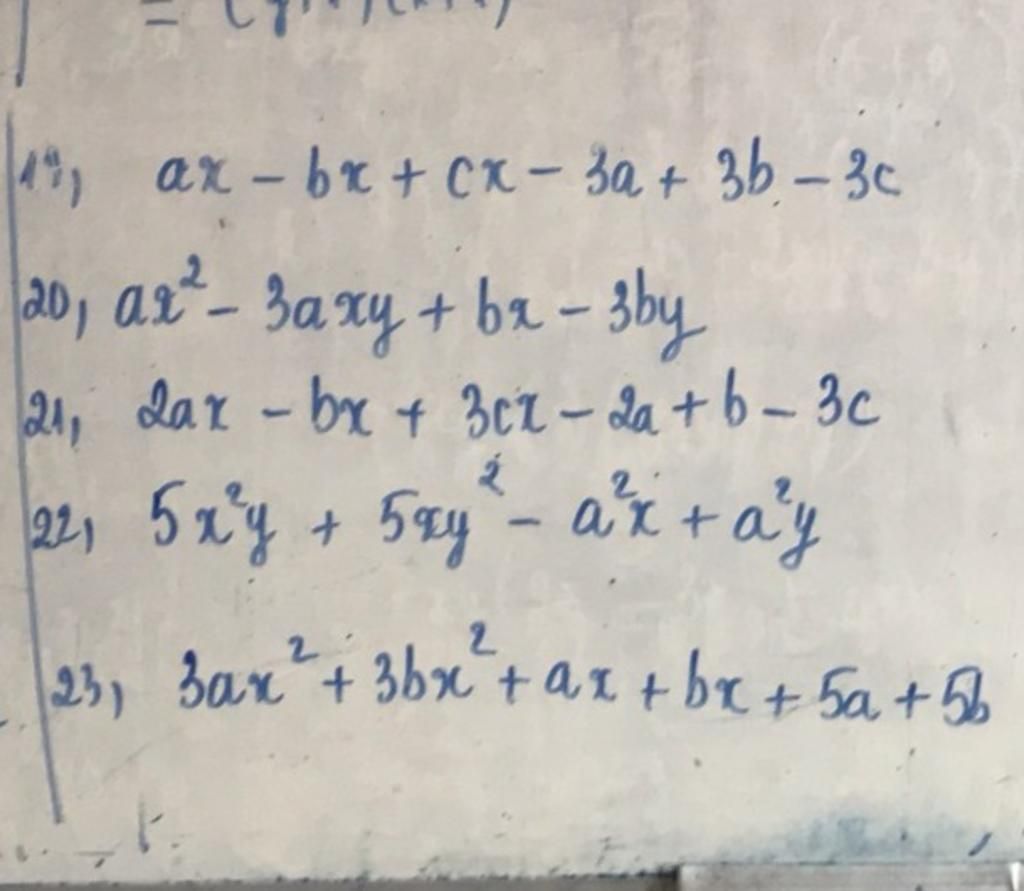 19, ax - bx + cx - 3a + 3b - 3c
20, ax² - 3axy + bx - 3by
21, 2ax - bx + 3cx - 2a + b - 3c
22, 5x²y + 5xy² - a²x + a²y
23, 3ax² + 3bx² + ax + bx + 5a + 5b